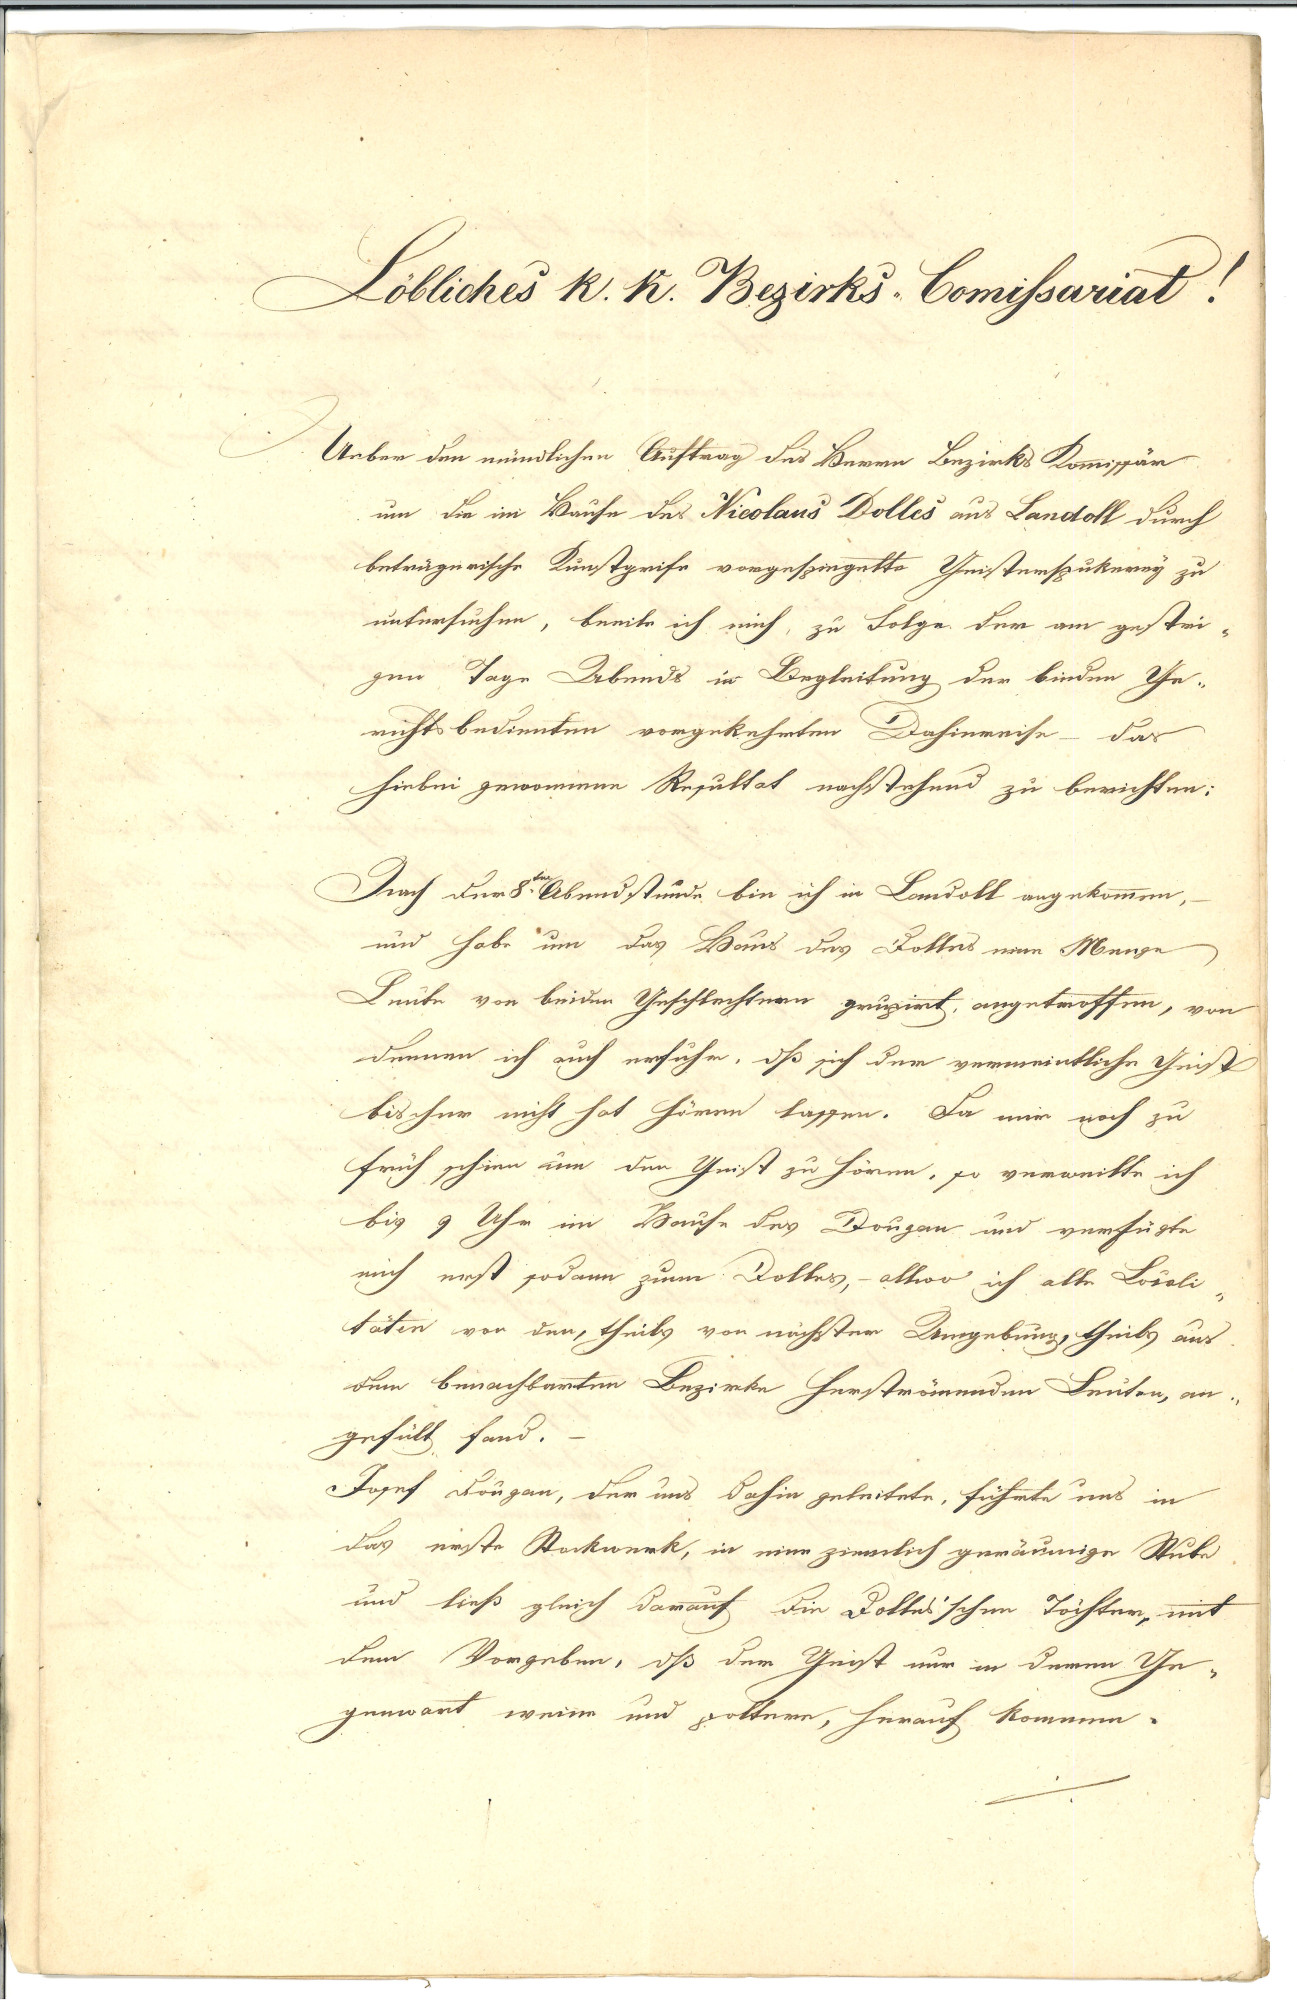 Löbliches k. k. Bezirks-Comißariat!
Ueber den mündlichen Auftrag des Herrn Bezirks Komissär
um die im Hause des Nicolaus Dolles aus Landoll durch
betrügerische Kunstgrife vorgespiegelte Geisterspukerey zu
untersuchen, beeile ich mich, zu Folge der am gestri-
gen Tage Abends in Begleitung der beiden Ge-
richtsbedienten vorgekehrten Dahinreise – das
hiebei gewonnene Resultat nachstehend zu berichten:
Nach der 8ten Abendstunde bin ich in Landoll angekommen, –
und habe um das Haus des Dolles eine Menge
Leute von beiden Geschlechtern grupirt, angetroffen, von
dennen ich auch erfuhr, dß sich der vermeintliche Geist
bischer nicht hat hören lassen. Da mir noch zu
früh schien um den Geist zu hören, so verweilte ich
bis 9 Uhr im Hause des Dougan und verfügte
mich erst sodann zum Dolles, – allwo ich alle Locali-
täten von den, theils von nächster Umgebung, theils aus
dem benachbarten Bezirke herströmenden Leuten, an-
gefült fand. –
Josef Dougan, der uns dahin geleitete, führte uns in
das erste Stockwerk, in eine ziemlich geräumige Stube
und ließ gleich darauf die Dolles'schen Töchter, mit
dem Vorgeben, dß der Geist nur in deren Ge-
genwart weine und poltere, herauf kommen.